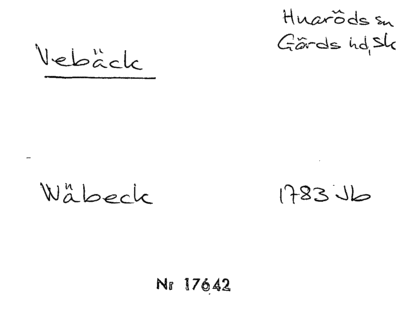 Huaröds sn
Vebäck
Gärds hd, Sk
Wäbeck
1783 Jb
Nr 17642